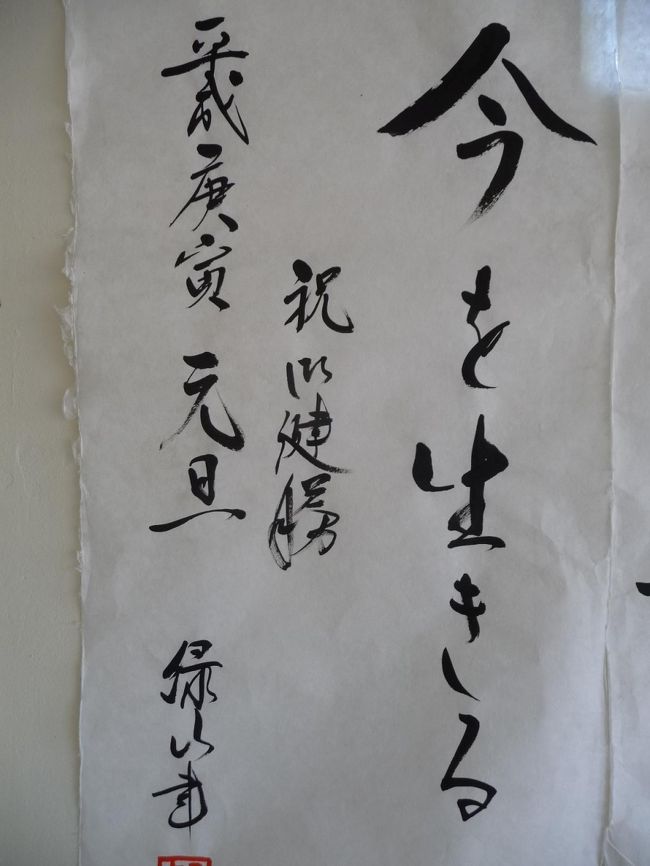 今を生きる
祝御健勝
平成庚寅 元旦
緑山書